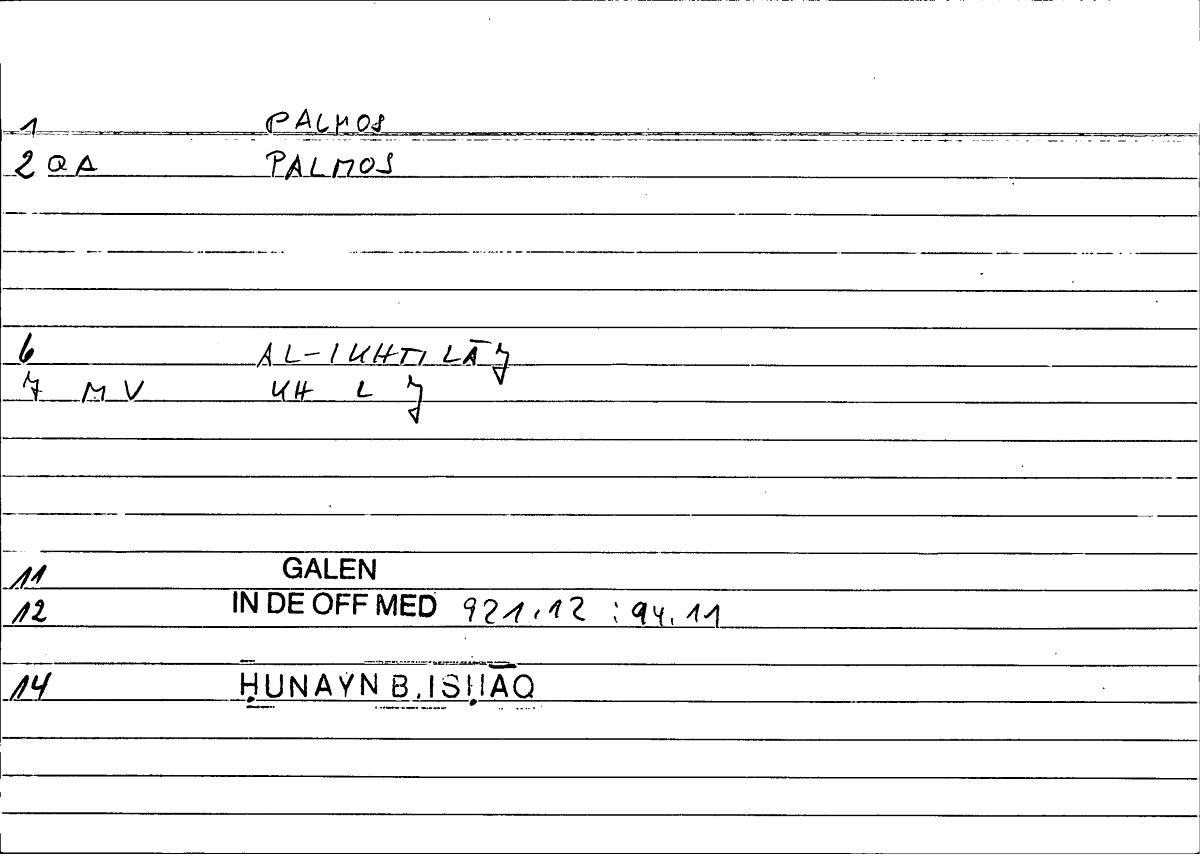 1 PALMOS
2 QA PALMOS
6 AL-IKHTILĀJ
7 MV KH L J
11 GALEN
12 IN DE OFF MED 921.12 : 94.11
14 ḤUNAYN B. ISḤĀQ